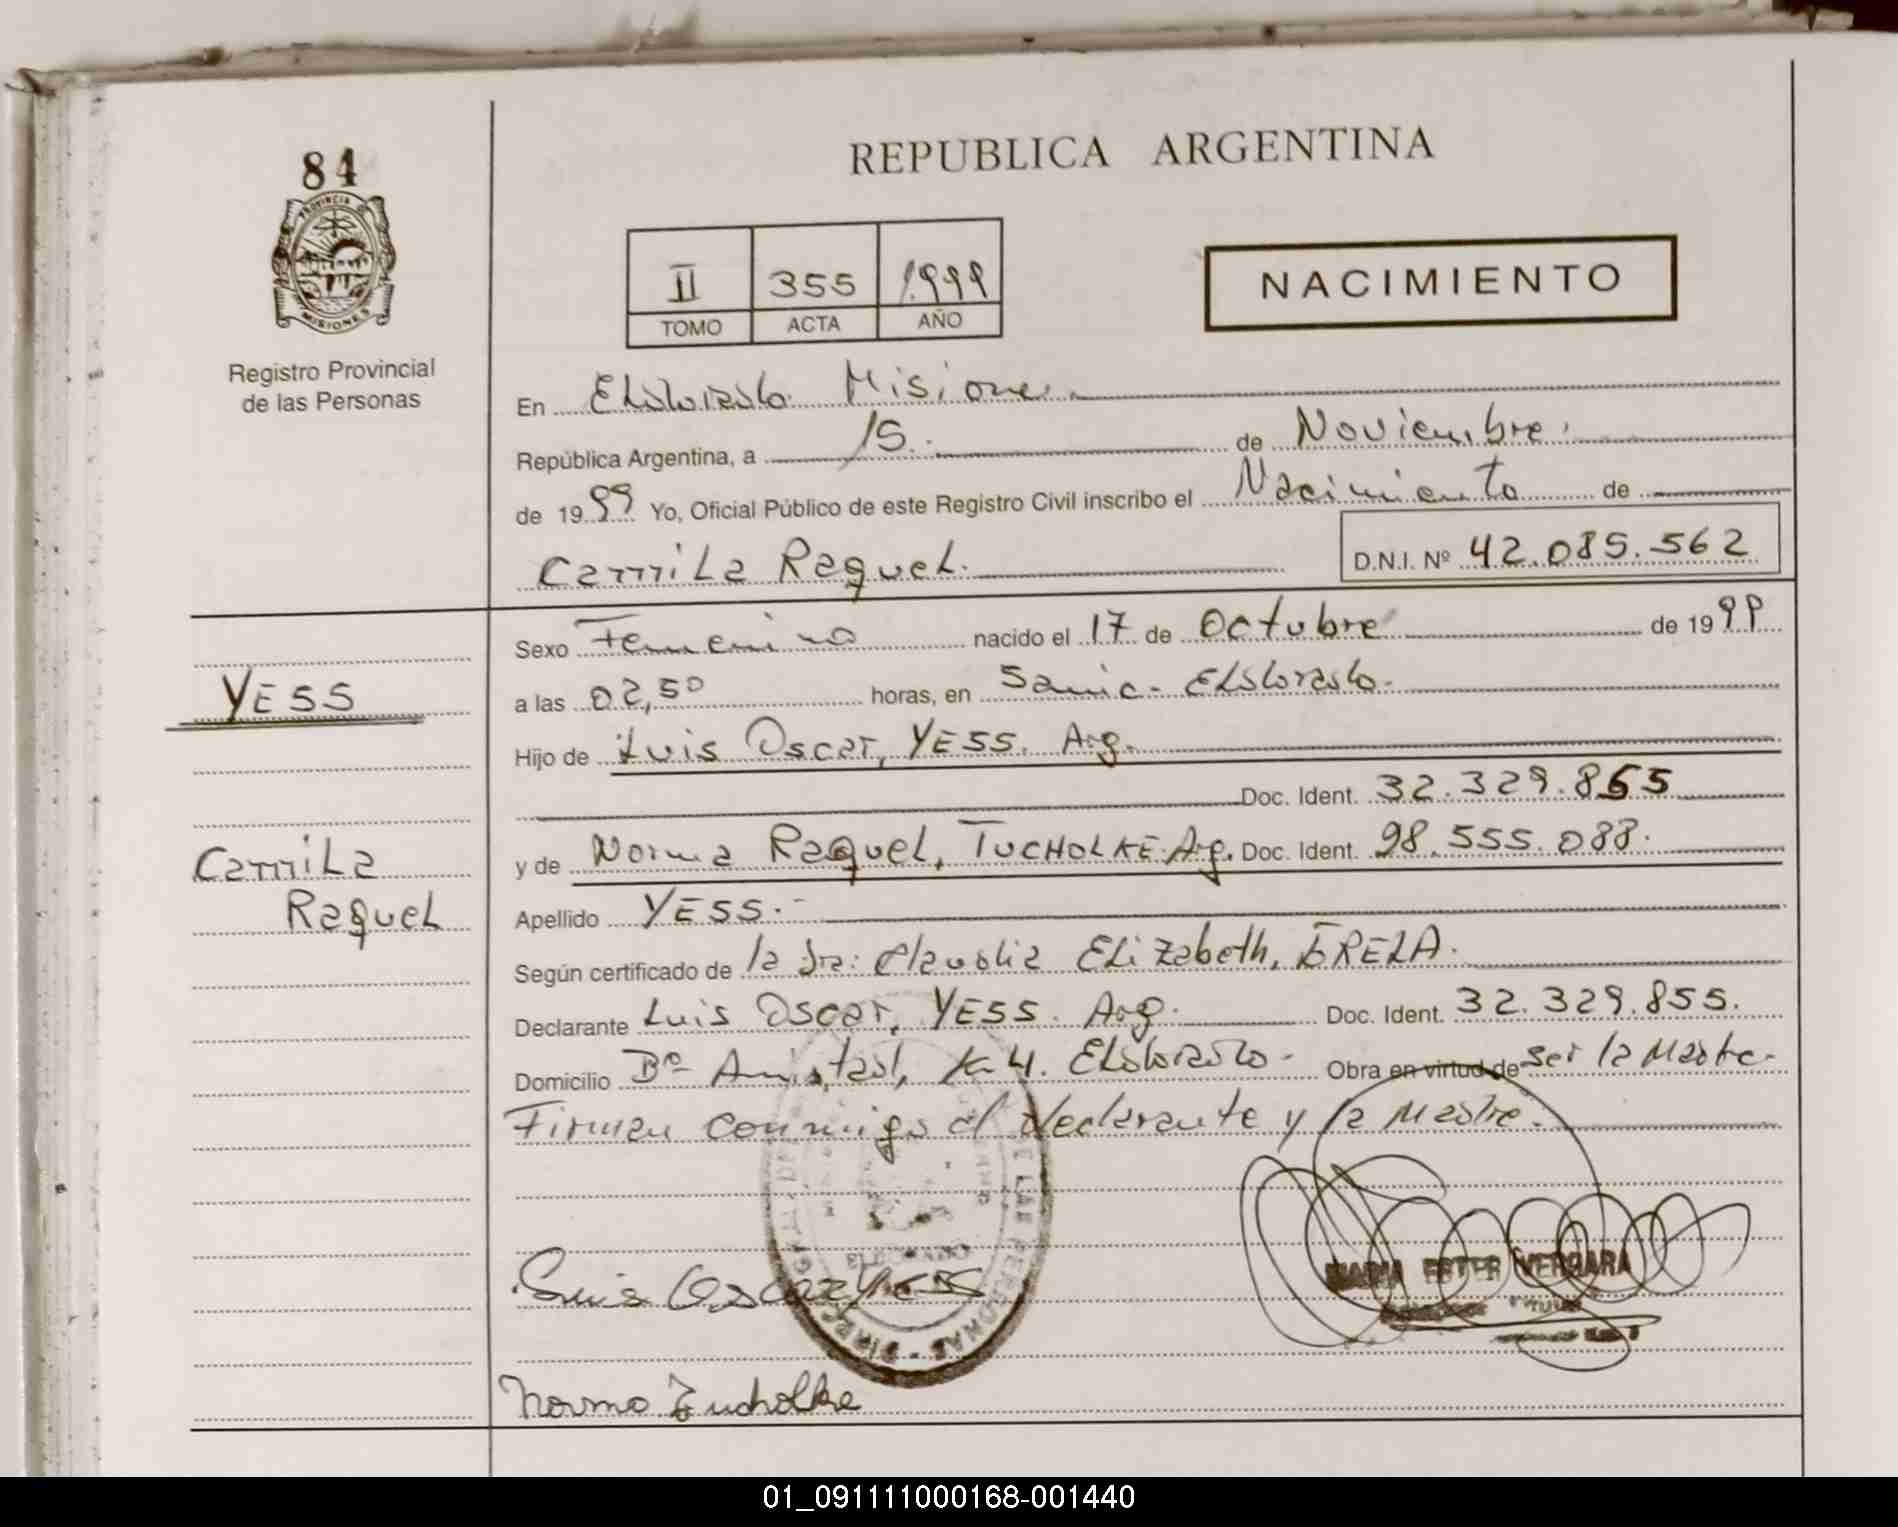 84
PROVINCIA
MISIONES
Registro Provincial
de las Personas
REPUBLICA ARGENTINA
II 355 1.999
TOMO ACTA AÑO
NACIMIENTO
En Eldorado Misiones
República Argentina, a 15. de Noviembre.
de 1999 Yo, Oficial Público de este Registro Civil inscribo el Nacimiento de
Camila Raquel. D.N.I. Nº 42.085.562
Sexo Femenino nacido el 17 de Octubre de 1999
YESS
a las 02,50 horas, en Samic - Eldorado.
Hijo de Luis Oscar, YESS. Arg.
Doc. Ident. 32.329.855
Camila
Raquel
y de Norma Raquel, TUCHOLKE Arg. Doc. Ident. 98.555.088.
Apellido YESS.-
Según certificado de la Dra: Claudia Elizabeth,
Declarante Luis Oscar, YESS. Arg. Doc. Ident. 32.329.855.
Domicilio Bº Amistad, Km 4. Eldorado - Obra en virtud de ser la Madre-
Firman conmigo el declarante y la Madre.
Luis Oscar YESS
MARIA ESTER VERGARA
Norma Tucholke
01_091111000168-001440